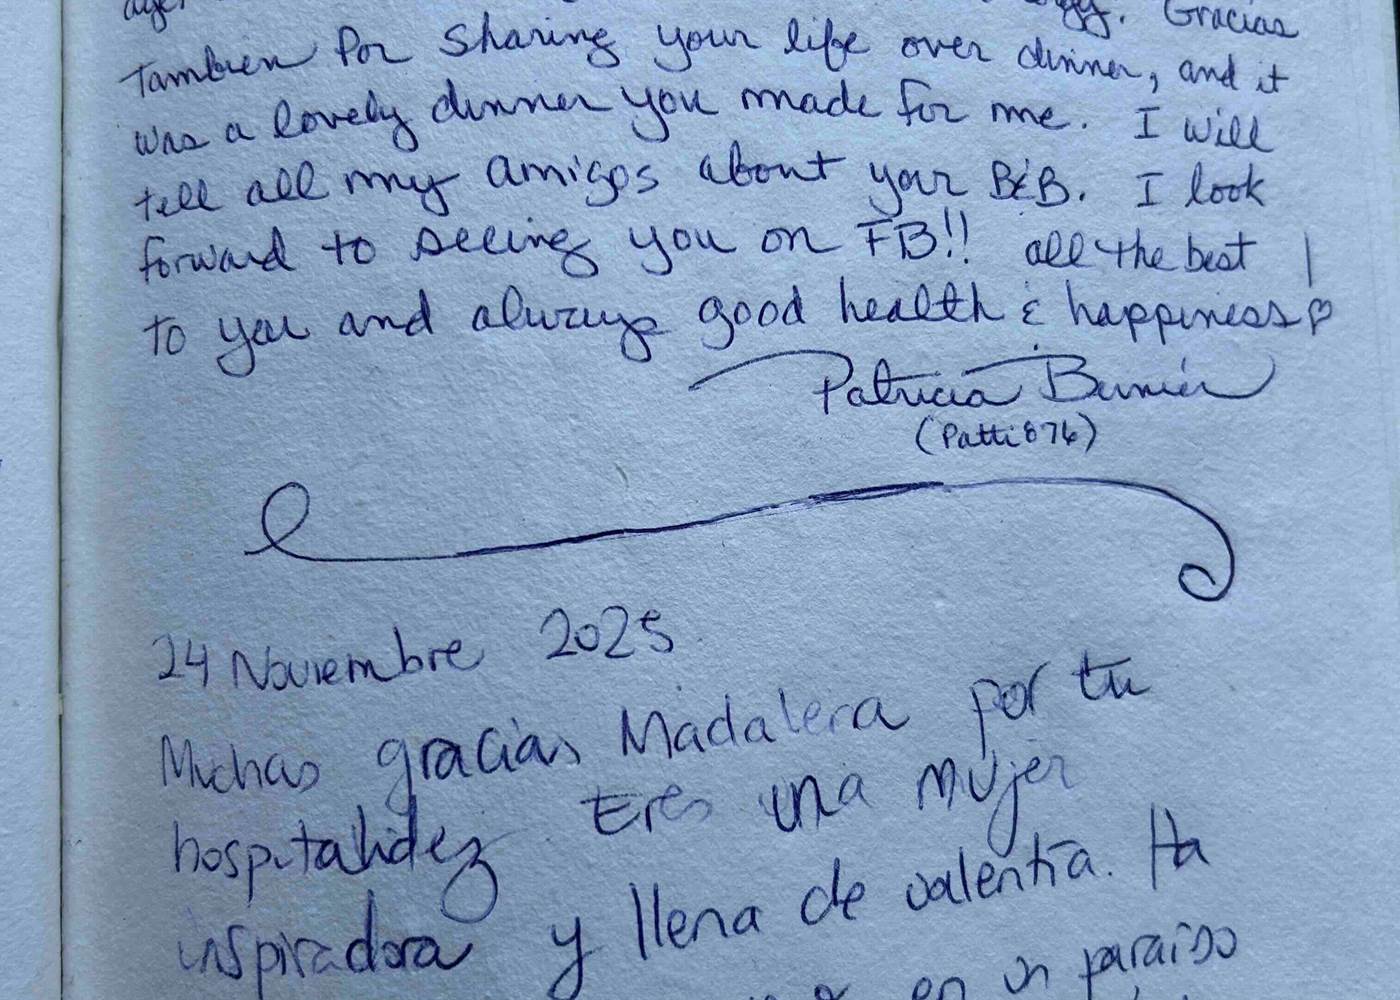 Gracias
Tambien Por Sharing your life over dinner, and it
was a lovely dinner you made for me. I will
tell all my amigos about your B&B. I look
forward to seeing you on FB!! all the best
to you and always good health & happiness!♡
Patricia
(Patti876)
24 Noviembre 2025
Muchas gracias Madalena por tu
hospitalidez. Eres una mujer
inspiradora y llena de valentía. Ha
en un paraiso